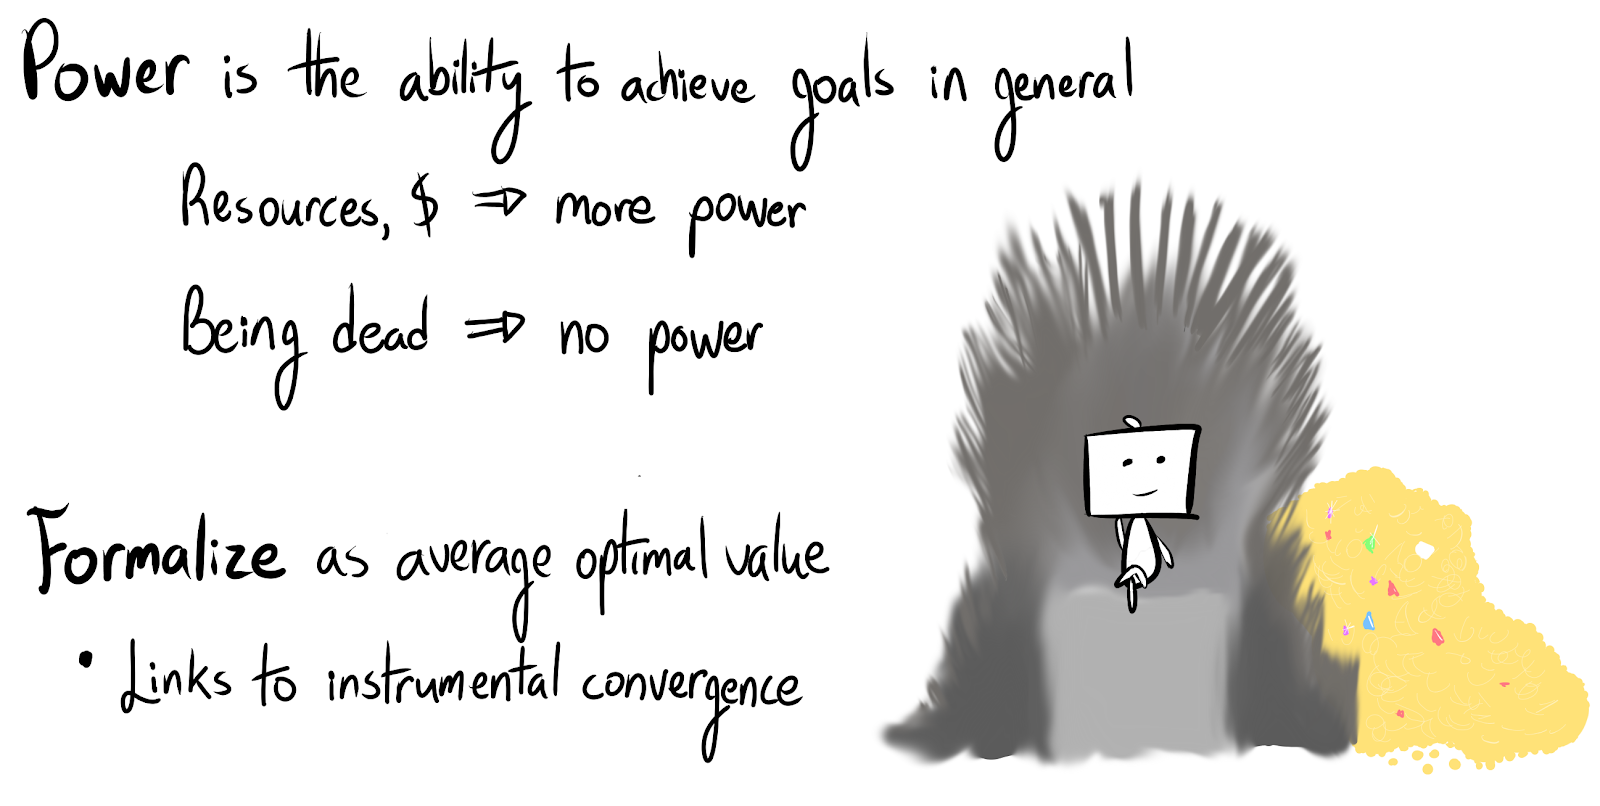 Power is the ability to achieve goals in general
Resources, $ ⇒ more power
Being dead ⇒ no power
Formalize as average optimal value
• Links to instrumental convergence